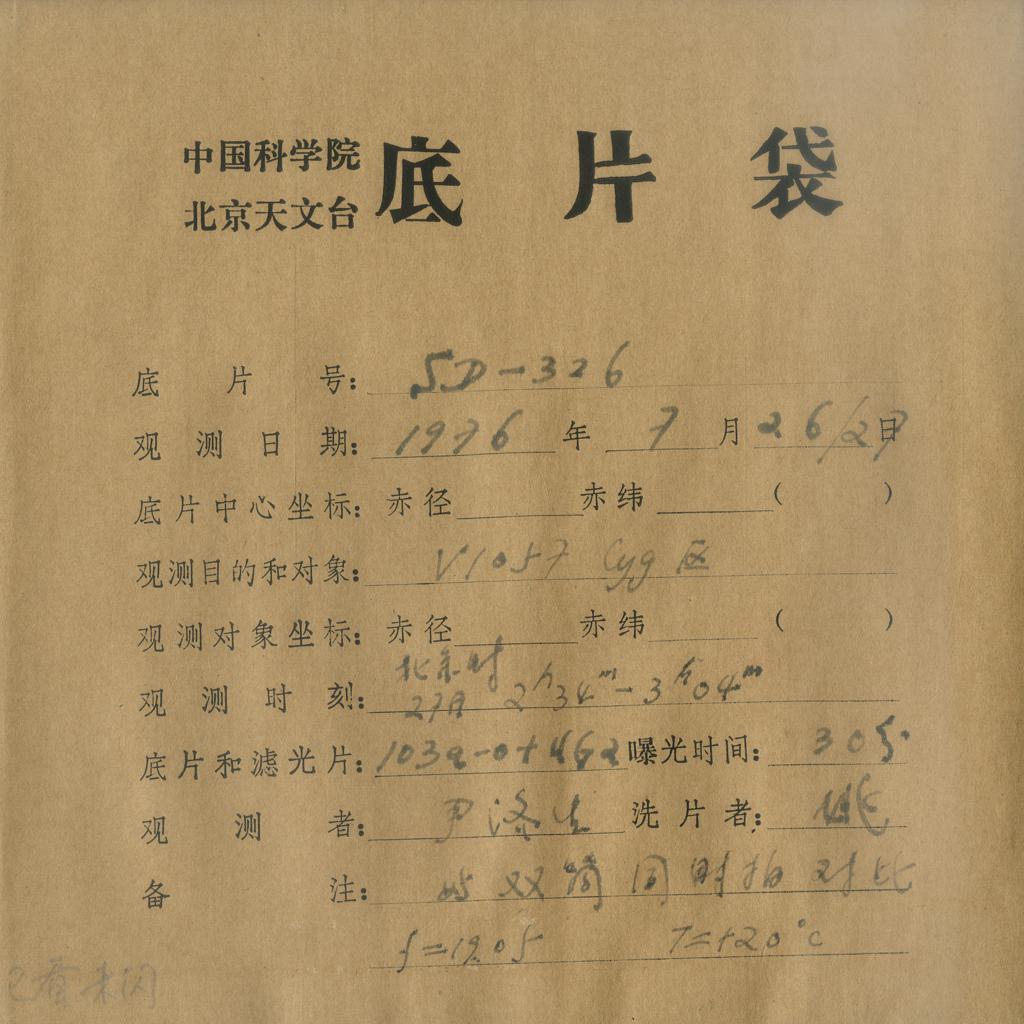 中国科学院
北京天文台
底片袋
底片号: SD-326
观测日期: 1976年 7月26/27日
底片中心坐标: 赤径 赤纬 ( )
观测目的和对象: V1057 Cyg 区
观测对象坐标: 赤径 赤纬 ( )
北京时
观测时刻: 27日 2h34m-3h04m
底片和滤光片: 103a-0+ 曝光时间: 30
观测者: 尹济生 洗片者: 姚
备注: 与双筒同时拍对比
f=19.05 T=+20°C